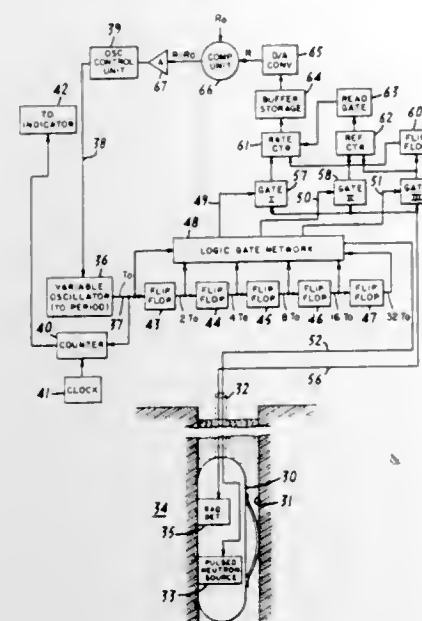 39
OSC CONTROL UNIT
A
67
R-Ro
Ro
COMP UNIT
66
R
D/A CONV
65
42
TO INDICATOR
38
BUFFER STORAGE
64
READ GATE
63
61
RATE CTR
REF CTR
62
FLIP FLOP
60
49
GATE I
57
50
58
GATE II
51
GATE III
48
LOGIC GATE NETWORK
36
VARIABLE OSCILLATOR (TO PERIOD)
To
37
FLIP FLOP
43
2 To
FLIP FLOP
44
4 To
FLIP FLOP
45
8 To
FLIP FLOP
46
16 To
FLIP FLOP
47
32 To
40
COUNTER
CLOCK
41
52
56
32
30
31
34
RAD DET
35
PULSED NEUTRON SOURCE
33